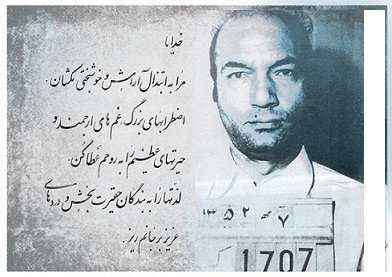 خدایا
مرا به ابتذال آرامش و خوشبختی مکشان.
اضطرابهای بزرگ، غم های ارجمند و
حیرتهای عظیم را به روحم عطا کن.
لذتها را به بندگان حقیرت بخش و دردهای
عزیز بر جانم ریز.
۷ مهر ۱۳۵۲
1707